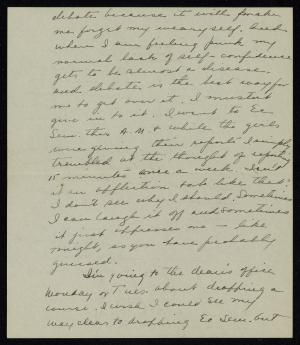 debate because it will make
me forget my weary self. Besides
when I am feeling punk my
normal lack of self-confidence
gets to be almost a disease
and debate is the best way for
me to get over it. I mustn't
give in to it. I went to Ec
Sem. this A.M. & while the girls
were giving their reports I simply
trembled at the thought of reporting
15 minutes once a week. Isn't
it an affliction to be like that?
I don't see why I should. Sometimes
I can laugh it off and sometimes
it just oppresses me – like
tonight, as you have probably
guessed.
I'm going to the dean's office
Monday or Tues. about dropping a
course. I wish I could see my
way clear to dropping Ec Sem. but